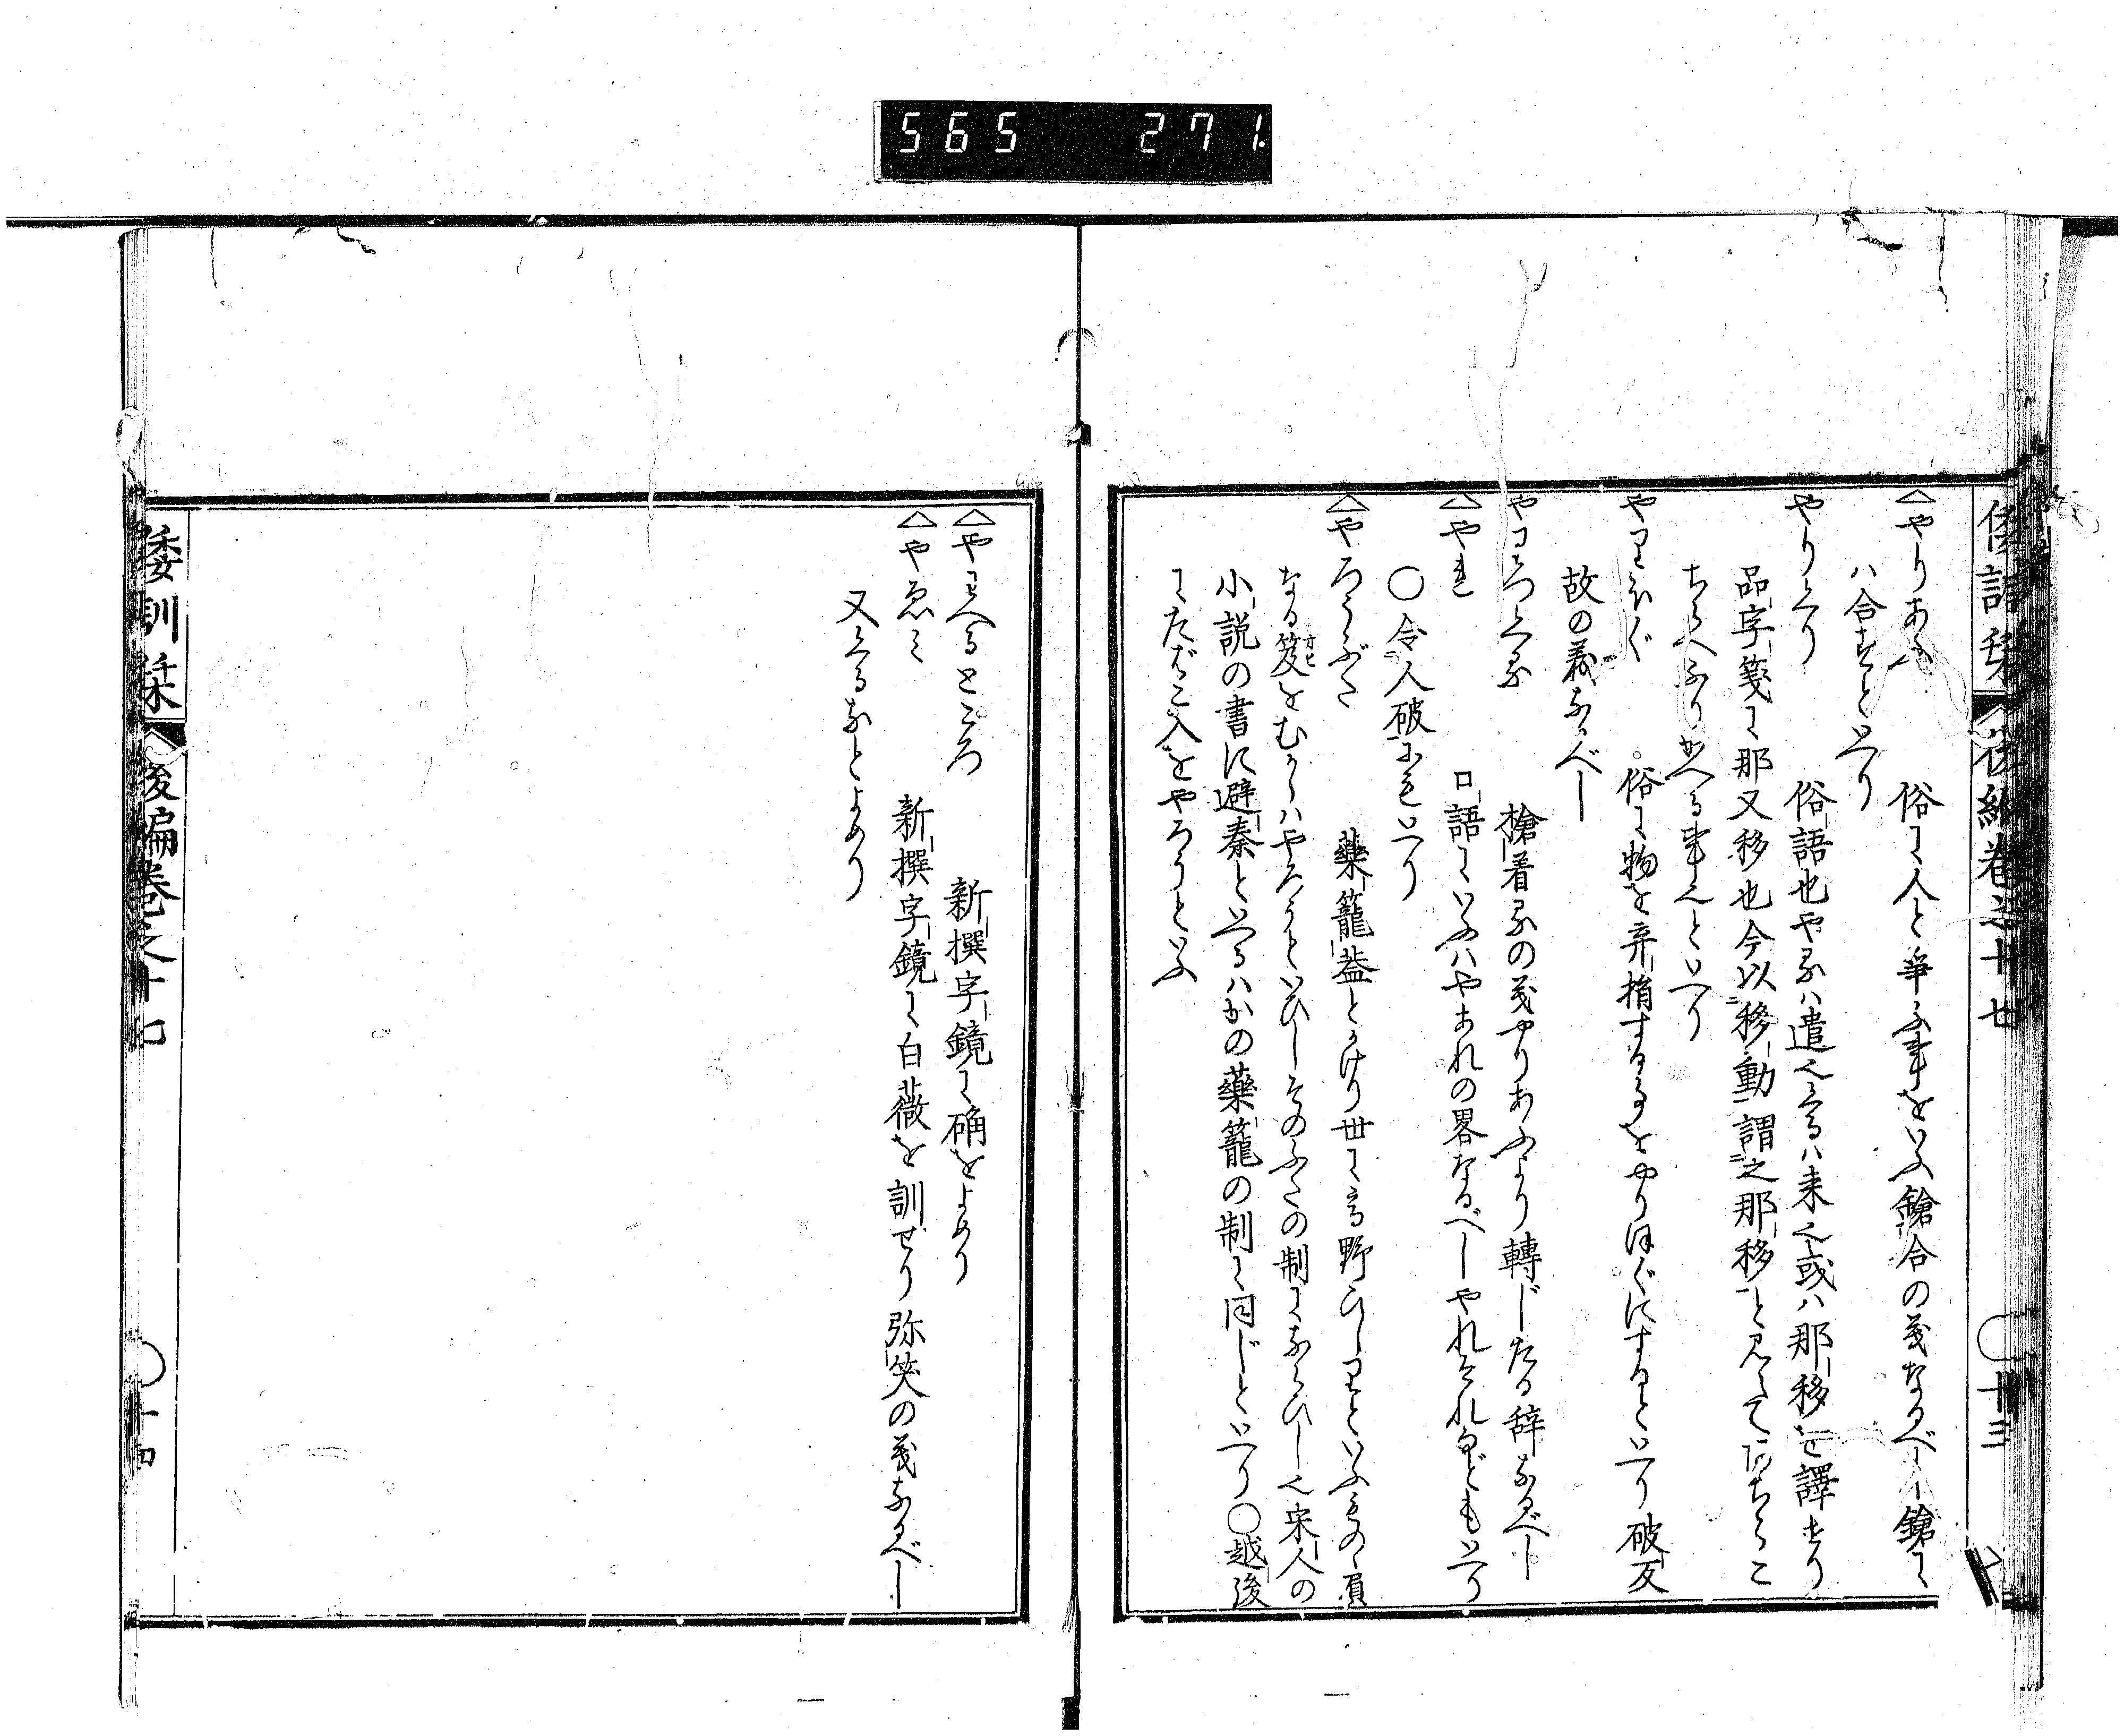 565 271
倭訓栞 後編巻之十七 十三
△やりあふ 俗に人と爭ふ事をいふ鎗合の義なるべし鎗に
ハ合すといへり
やりくり 俗語也やるハ遣也くるハ来也或ハ那移を譯せり
品字箋に那又移也今以移動謂之那移と見えて
ちらへふりかへる事也といへり
やりほぐ 俗に物を弃捐するをやりほぐにするといへり破反
故の義なるべし
やりつくる 槍着るの義やりあふより轉じたる辞なるべし
△やれ 口語にいふハやあれの畧なるべしやれそれなどもいへり
○令人破にもいへり
△やろうぶた 藥籠葢とかけり世に高野ひじりといふものゝ負
なる笈をむかしハやろうといひしそのふたの制にならひし也宋人の
小説の書に避秦といへるハかの藥籠の制に同じといへり○越後
にたばこ入をやろうといふ
△やわへるところ 新撰字鏡に确をよめり
△やゑみ 新撰字鏡に白薇を訓せり弥笑の義なるべし
又くるなとよめり
倭訓栞 後編巻之十七 ○十四